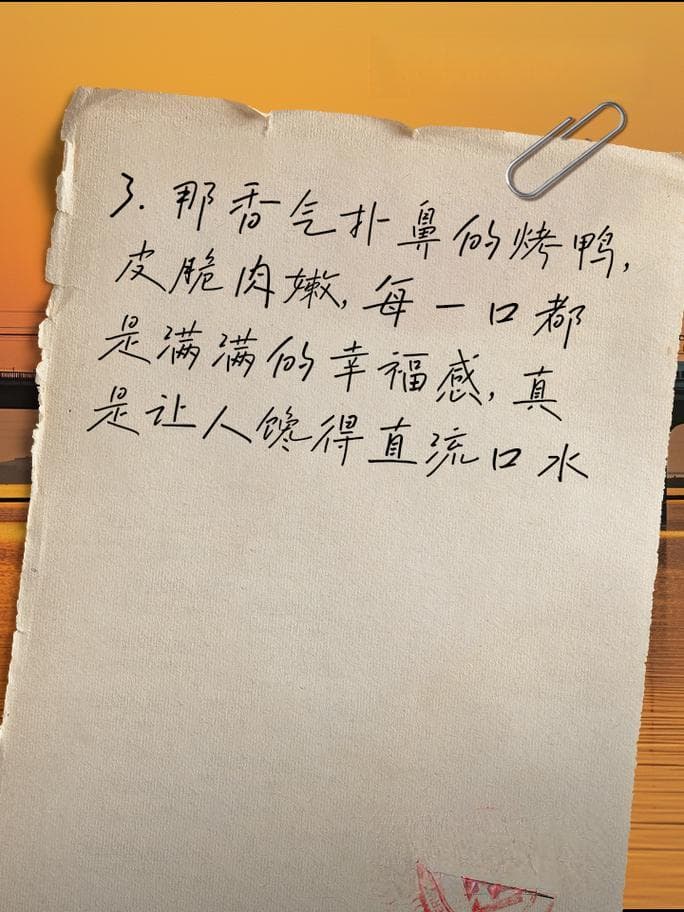 3. 那香气扑鼻的烤鸭,
皮脆肉嫩, 每一口都
是满满的幸福感, 真
是让人馋得直流口水